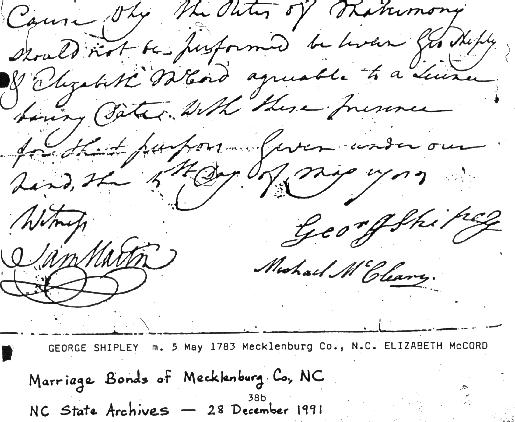 Cause Why the Rites of Matrimony
Should not be performed between Geo Shiply
& Elizabeth McCord agreable to a Licence
baring Date With these presence
for that purpose Given under our
hand, the 5th Day of May
Witness
Sam Martin
Georg Shipley
Michael McCleary.
GEORGE SHIPLEY m. 5 May 1783 Mecklenburg Co., N.C. ELIZABETH McCORD
Marriage Bonds of Mecklenburg Co, NC
38b
NC State Archives — 28 December 1991